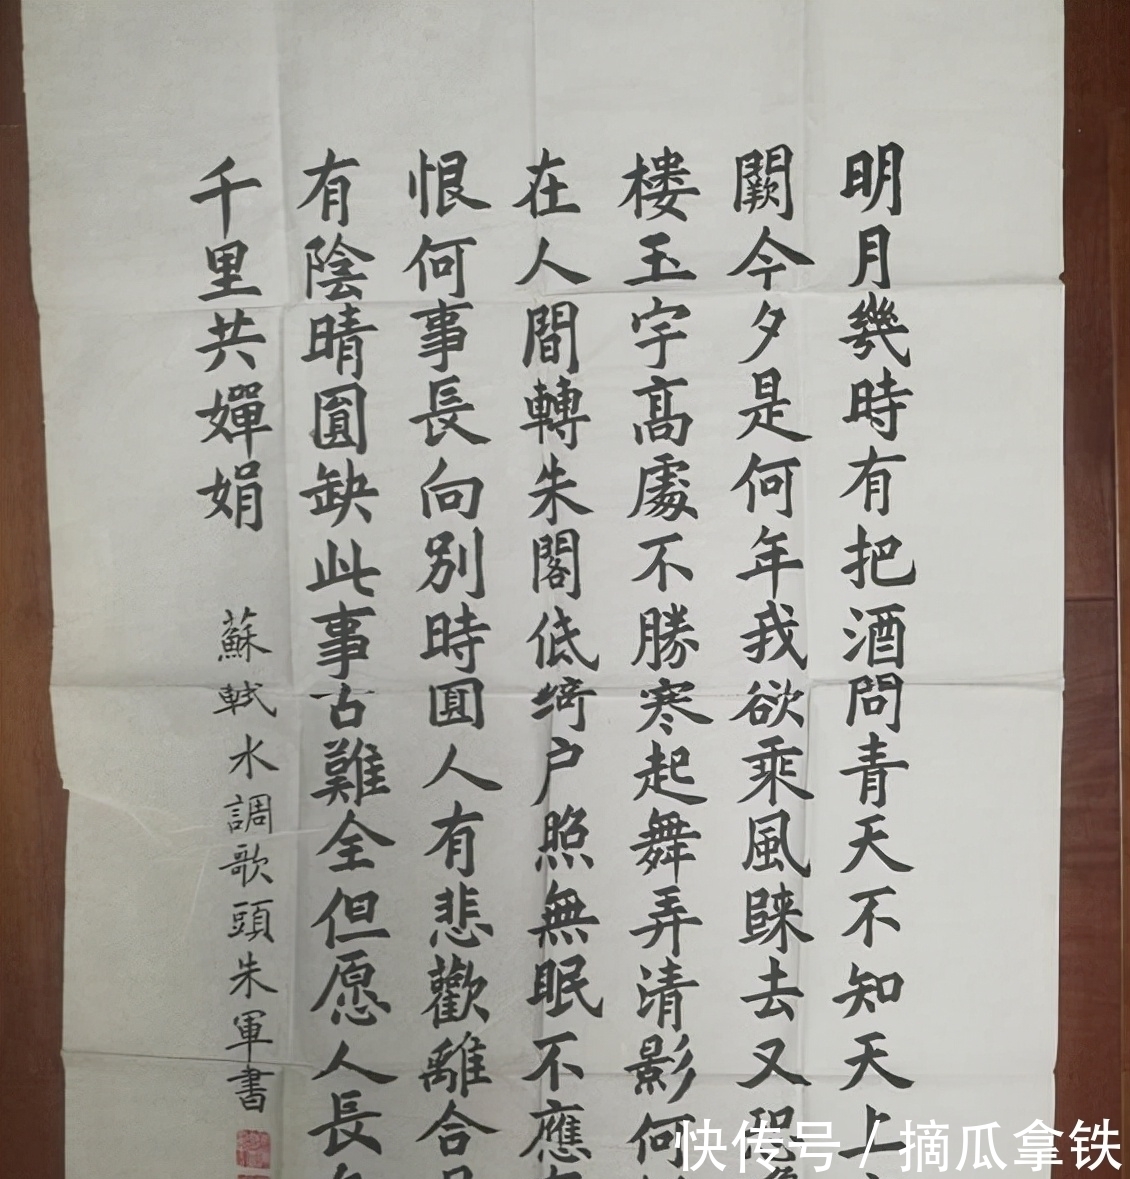 明月幾時有把酒問青天不知天上
闕今夕是何年我欲乘風歸去又恐
樓玉宇高處不勝寒起舞弄清影何
在人間轉朱閣低綺户照無眠不應
恨何事長向別時圓人有悲歡離合
有陰晴圓缺此事古難全但愿人長
千里共嬋娟
蘇軾水調歌頭朱軍書
快传号/摘瓜拿铁